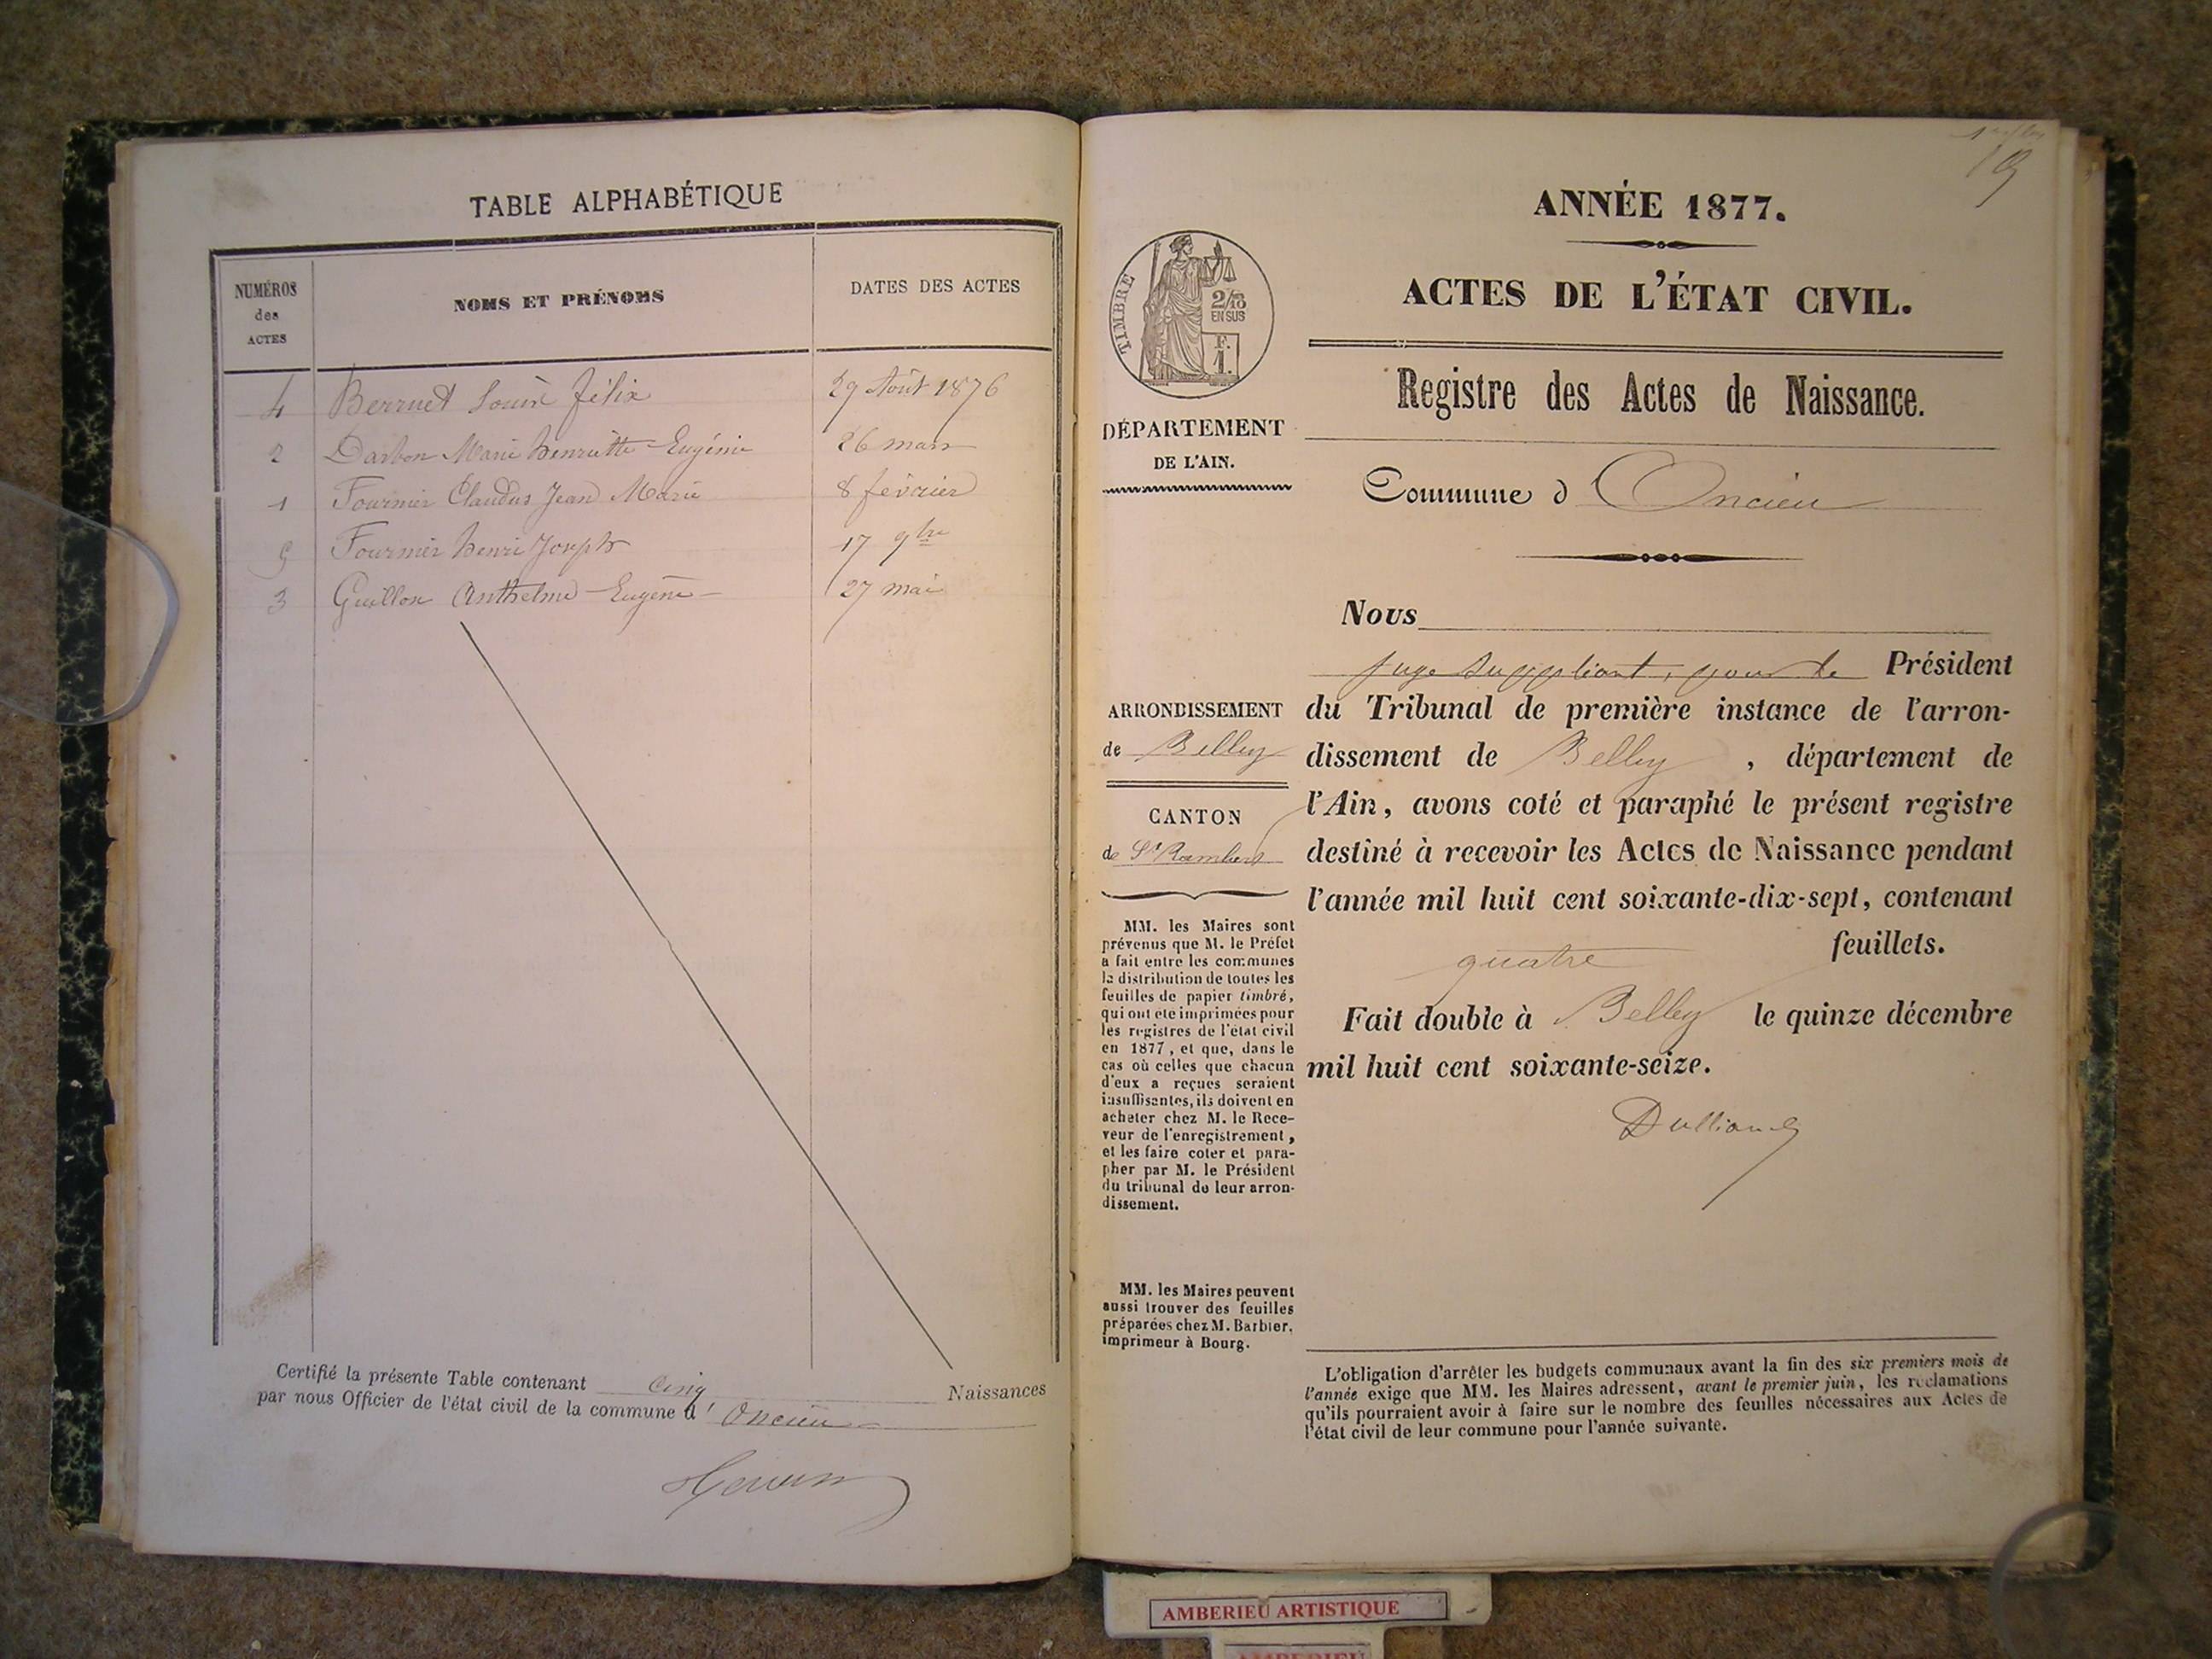 TABLE ALPHABÉTIQUE
NUMÉROS des ACTES
NOMS ET PRÉNOMS
DATES DES ACTES
4 Berrnet Louis Félix 29 Août 1876
2 Darbon Marie henriette Eugénie 26 mars
1 Fournier Claudius Jean Marie 8 février
5 Fournier henri Joseph 17 9bre
3 Guillon Anthelme Eugène 27 mai
Certifié la présente Table contenant cinq Naissances
par nous Officier de l'état civil de la commune d' Oncieu
19
ANNÉE 1877.
ACTES DE L'ÉTAT CIVIL.
Registre des Actes de Naissance.
Commune d Oncieu
TIMBRE
2/10
EN SUS
F.
1.
DÉPARTEMENT
DE L'AIN.
ARRONDISSEMENT
de Belley
CANTON
de St Rambert
MM. les Maires sont
prévenus que M. le Préfet
a fait entre les communes
la distribution de toutes les
feuilles de papier timbré,
qui ont été imprimées pour
les registres de l'état civil
en 1877, et que, dans le
cas où celles que chacun
d'eux a reçues seraient
insuffisantes, ils doivent en
acheter chez M. le Rece-
veur de l'enregistrement,
et les faire coter et para-
pher par M. le Président
du tribunal de leur arron-
dissement.
MM. les Maires peuvent
aussi trouver des feuilles
préparées chez M. Barbier,
imprimeur à Bourg.
Nous
juge suppléant, pour le Président
du Tribunal de première instance de l'arron-
dissement de Belley , département de
l'Ain, avons coté et paraphé le présent registre
destiné à recevoir les Actes de Naissance pendant
l'année mil huit cent soixante-dix-sept, contenant
quatre feuillets.
Fait double à Belley le quinze décembre
mil huit cent soixante-seize.
L'obligation d'arrêter les budgets communaux avant la fin des six premiers mois de
l'année exige que MM. les Maires adressent, avant le premier juin, les réclamations
qu'ils pourraient avoir à faire sur le nombre des feuilles nécessaires aux Actes de
l'état civil de leur commune pour l'année suivante.
AMBERIEU ARTISTIQUE
AMBERIEU